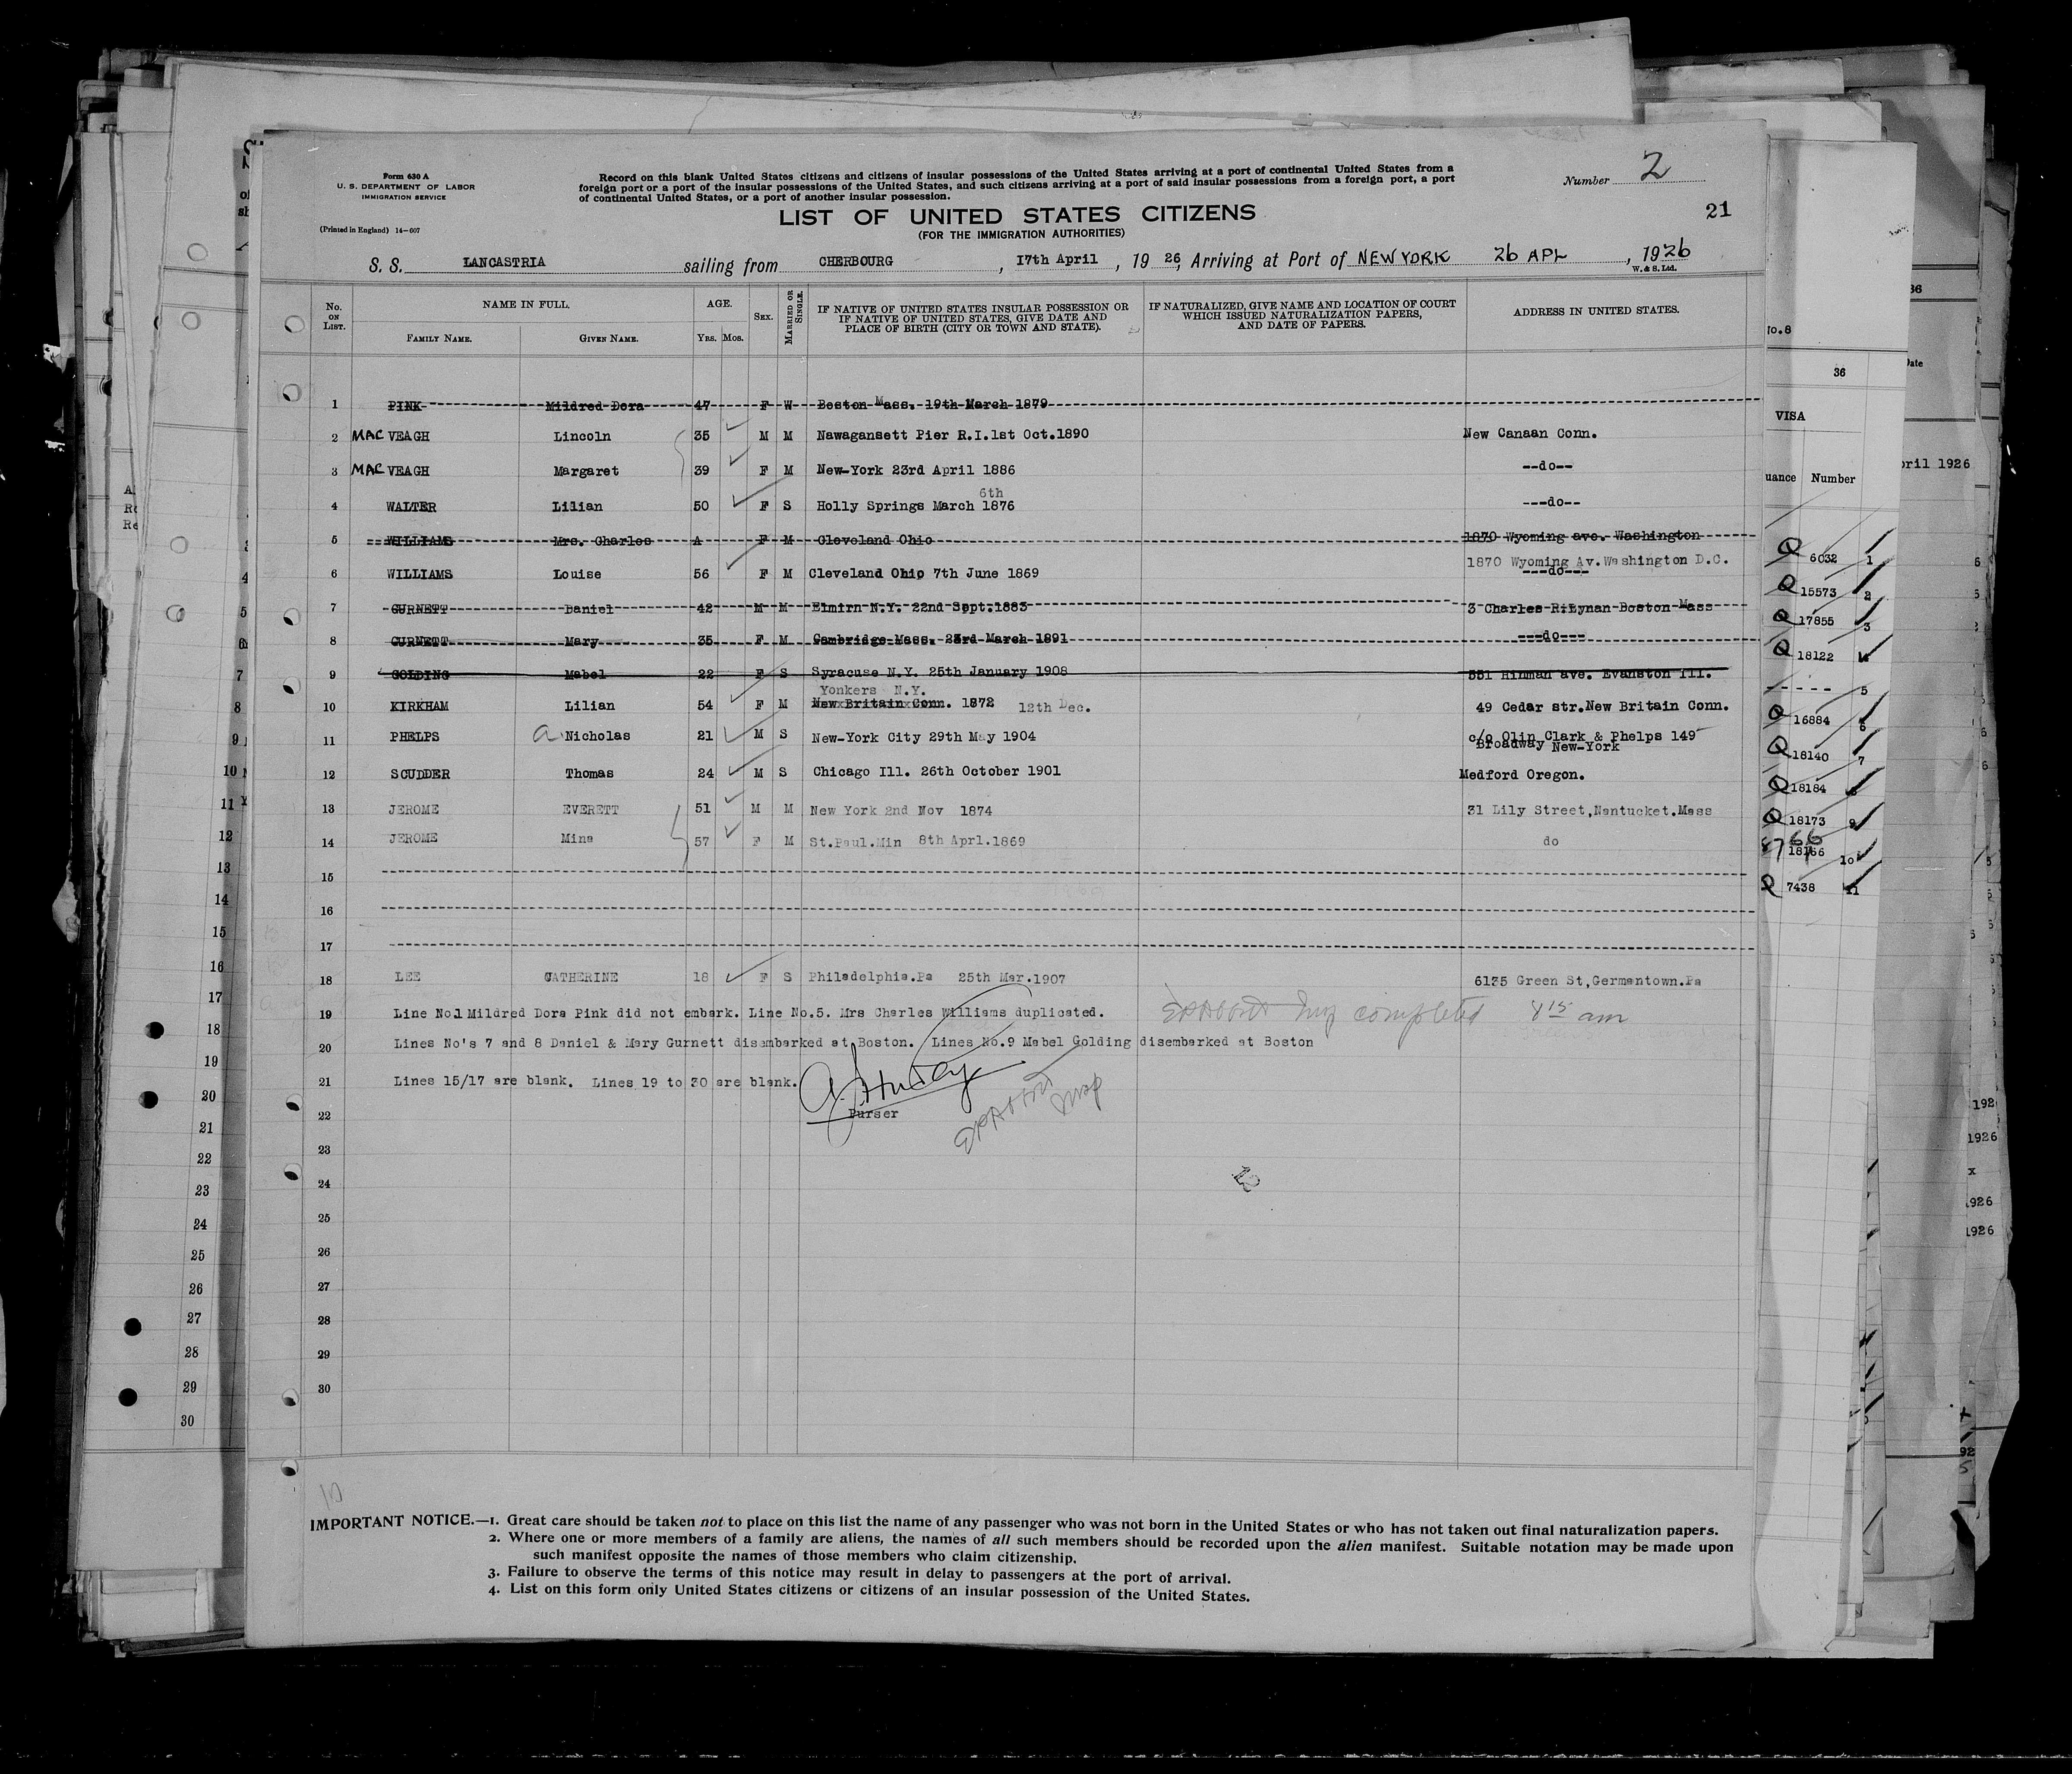 Form 630 A
U. S. DEPARTMENT OF LABOR
IMMIGRATION SERVICE
(Printed in England) 14-607
Record on this blank United States citizens and citizens of insular possessions of the United States arriving at a port of continental United States from a
foreign port or a port of the insular possessions of the United States, and such citizens arriving at a port of said insular possessions from a foreign port, a port
of continental United States, or a port of another insular possession.
Number 2
21
LIST OF UNITED STATES CITIZENS
(FOR THE IMMIGRATION AUTHORITIES)
S. S. LANCASTRIA sailing from CHERBOURG, 17th April, 1926, Arriving at Port of NEW YORK 26 APL, 1926
W. & S. Ltd.
No. ON LIST.
NAME IN FULL.
FAMILY NAME.
GIVEN NAME.
AGE.
YRS. MOS.
SEX.
MARRIED OR SINGLE.
IF NATIVE OF UNITED STATES INSULAR POSSESSION OR
IF NATIVE OF UNITED STATES, GIVE DATE AND
PLACE OF BIRTH (CITY OR TOWN AND STATE).
IF NATURALIZED, GIVE NAME AND LOCATION OF COURT
WHICH ISSUED NATURALIZATION PAPERS,
AND DATE OF PAPERS.
ADDRESS IN UNITED STATES.
1 PINK Mildred Dora 47 F W Boston Mass. 19th March 1879
2 MAC VEAGH Lincoln 35 M M Nawagansett Pier R.I.1st Oct.1890 New Canaan Conn.
3 MAC VEAGH Margaret 39 F M New-York 23rd April 1886 --do--
6th
4 WALTER Lilian 50 F S Holly Springs March 1876 ---do--
5 WILLIAMS Mrs. Charles A F M Cleveland Ohio 1870 Wyoming ave. Washington
1870 Wyoming Av.Washington D.C.
6 WILLIAMS Louise 56 F M Cleveland Ohio 7th June 1869 ---do---
7 GURNETT Daniel 42 M M Elmirn N.Y. 22nd Sept.1883 3 Charles Boston Mass
8 GURNETT Mary 35 F M Cambridge Mass. 23rd March 1891 ---do---
9 GOLDING Mabel 22 F S Syracuse N.Y. 25th January 1908 551 Hinman ave. Evanston Ill.
Yonkers N.Y.
10 KIRKHAM Lilian 54 F M New Britain Conn. 1872 12th Dec. 49 Cedar str.New Britain Conn.
11 PHELPS a Nicholas 21 M S New-York City 29th May 1904 c/o Olin Clark & Phelps 149
Broadway New-York
12 SCUDDER Thomas 24 M S Chicago Ill. 26th October 1901 Medford Oregon.
13 JEROME EVERETT 51 M M New York 2nd Nov 1874 31 Lily Street,Nantucket.Mass
14 JEROME Mina 57 F M St.Paul.Min 8th Aprl.1869 do
15
16
17
18 LEE CATHERINE 18 F S Philadelphia.Pa 25th Mar.1907 6135 Green St,Germantown.Pa
19 Line No.1 Mildred Dora Pink did not embark. Line No.5. Mrs Charles Williams duplicated. completed 8 15 am
20 Lines No's 7 and 8 Daniel & Mary Gurnett disembarked at Boston. Lines No.9 Mabel Golding disembarked at Boston
21 Lines 15/17 are blank. Lines 19 to 30 are blank.
22 Purser
23
24 12
25
26
27
28
29
30
IMPORTANT NOTICE.—1. Great care should be taken not to place on this list the name of any passenger who was not born in the United States or who has not taken out final naturalization papers.
2. Where one or more members of a family are aliens, the names of all such members should be recorded upon the alien manifest. Suitable notation may be made upon
such manifest opposite the names of those members who claim citizenship.
3. Failure to observe the terms of this notice may result in delay to passengers at the port of arrival.
4. List on this form only United States citizens or citizens of an insular possession of the United States.
No.8
36
VISA
uance Number
Q 6032 1
Q 15573 2
Q 17855 3
Q 18122
----- 5
Q 16884 6
Q 18140 7
Q 18184
Q 18173 9
18166 10
Q 7438 11
36
Date
pril 1926
192
1926
1926
1926
5
6
7
8
9
10
11
12
13
14
15
16
17
18
19
20
21
22
23
24
25
26
27
28
29
30